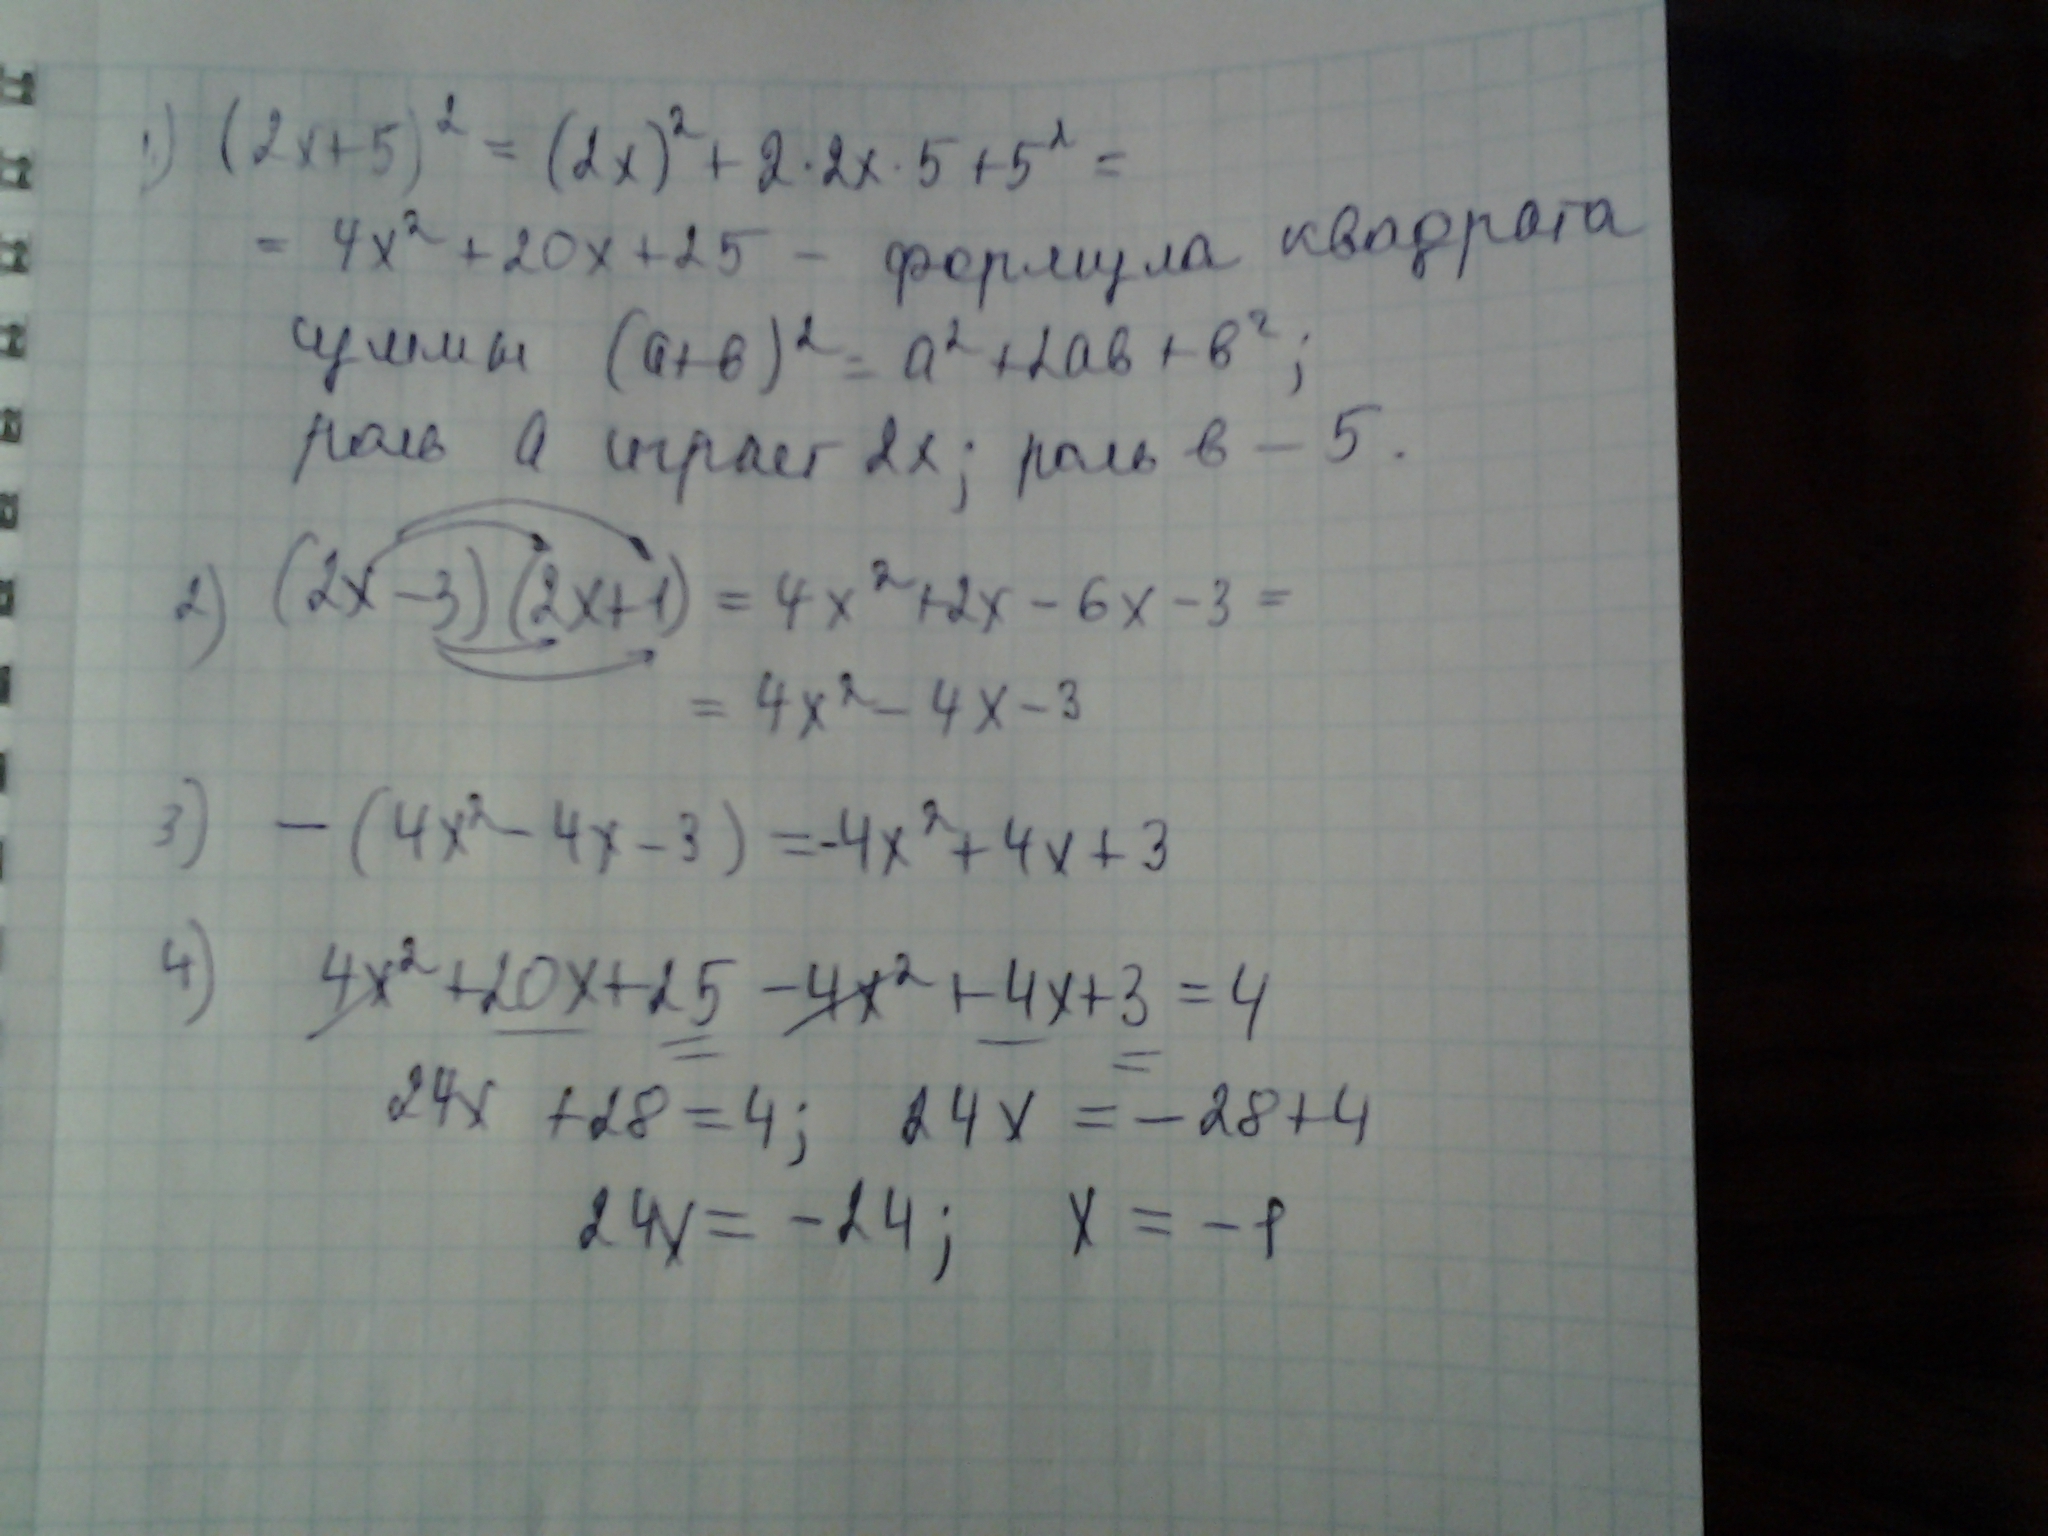 1) (2x+5)² = (2x)² + 2·2x·5 + 5² =
= 4x² + 20x + 25 – формула квадрата
суммы (а+в)² = а² + 2ав + в²;
роль а играет 2x; роль в – 5.
2) (2x – 3)(2x+1) = 4x² + 2x – 6x – 3 =
= 4x² – 4x – 3
3) – (4x² – 4x – 3) = -4x² + 4x + 3
4) 4x² + 20x + 25 – 4x² + 4x + 3 = 4
24x + 28 = 4; 24x = – 28 + 4
24x = – 24; x = – 1